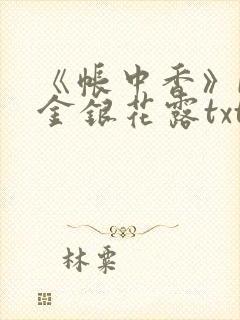 《帐中香》
金银花露txt
林霁